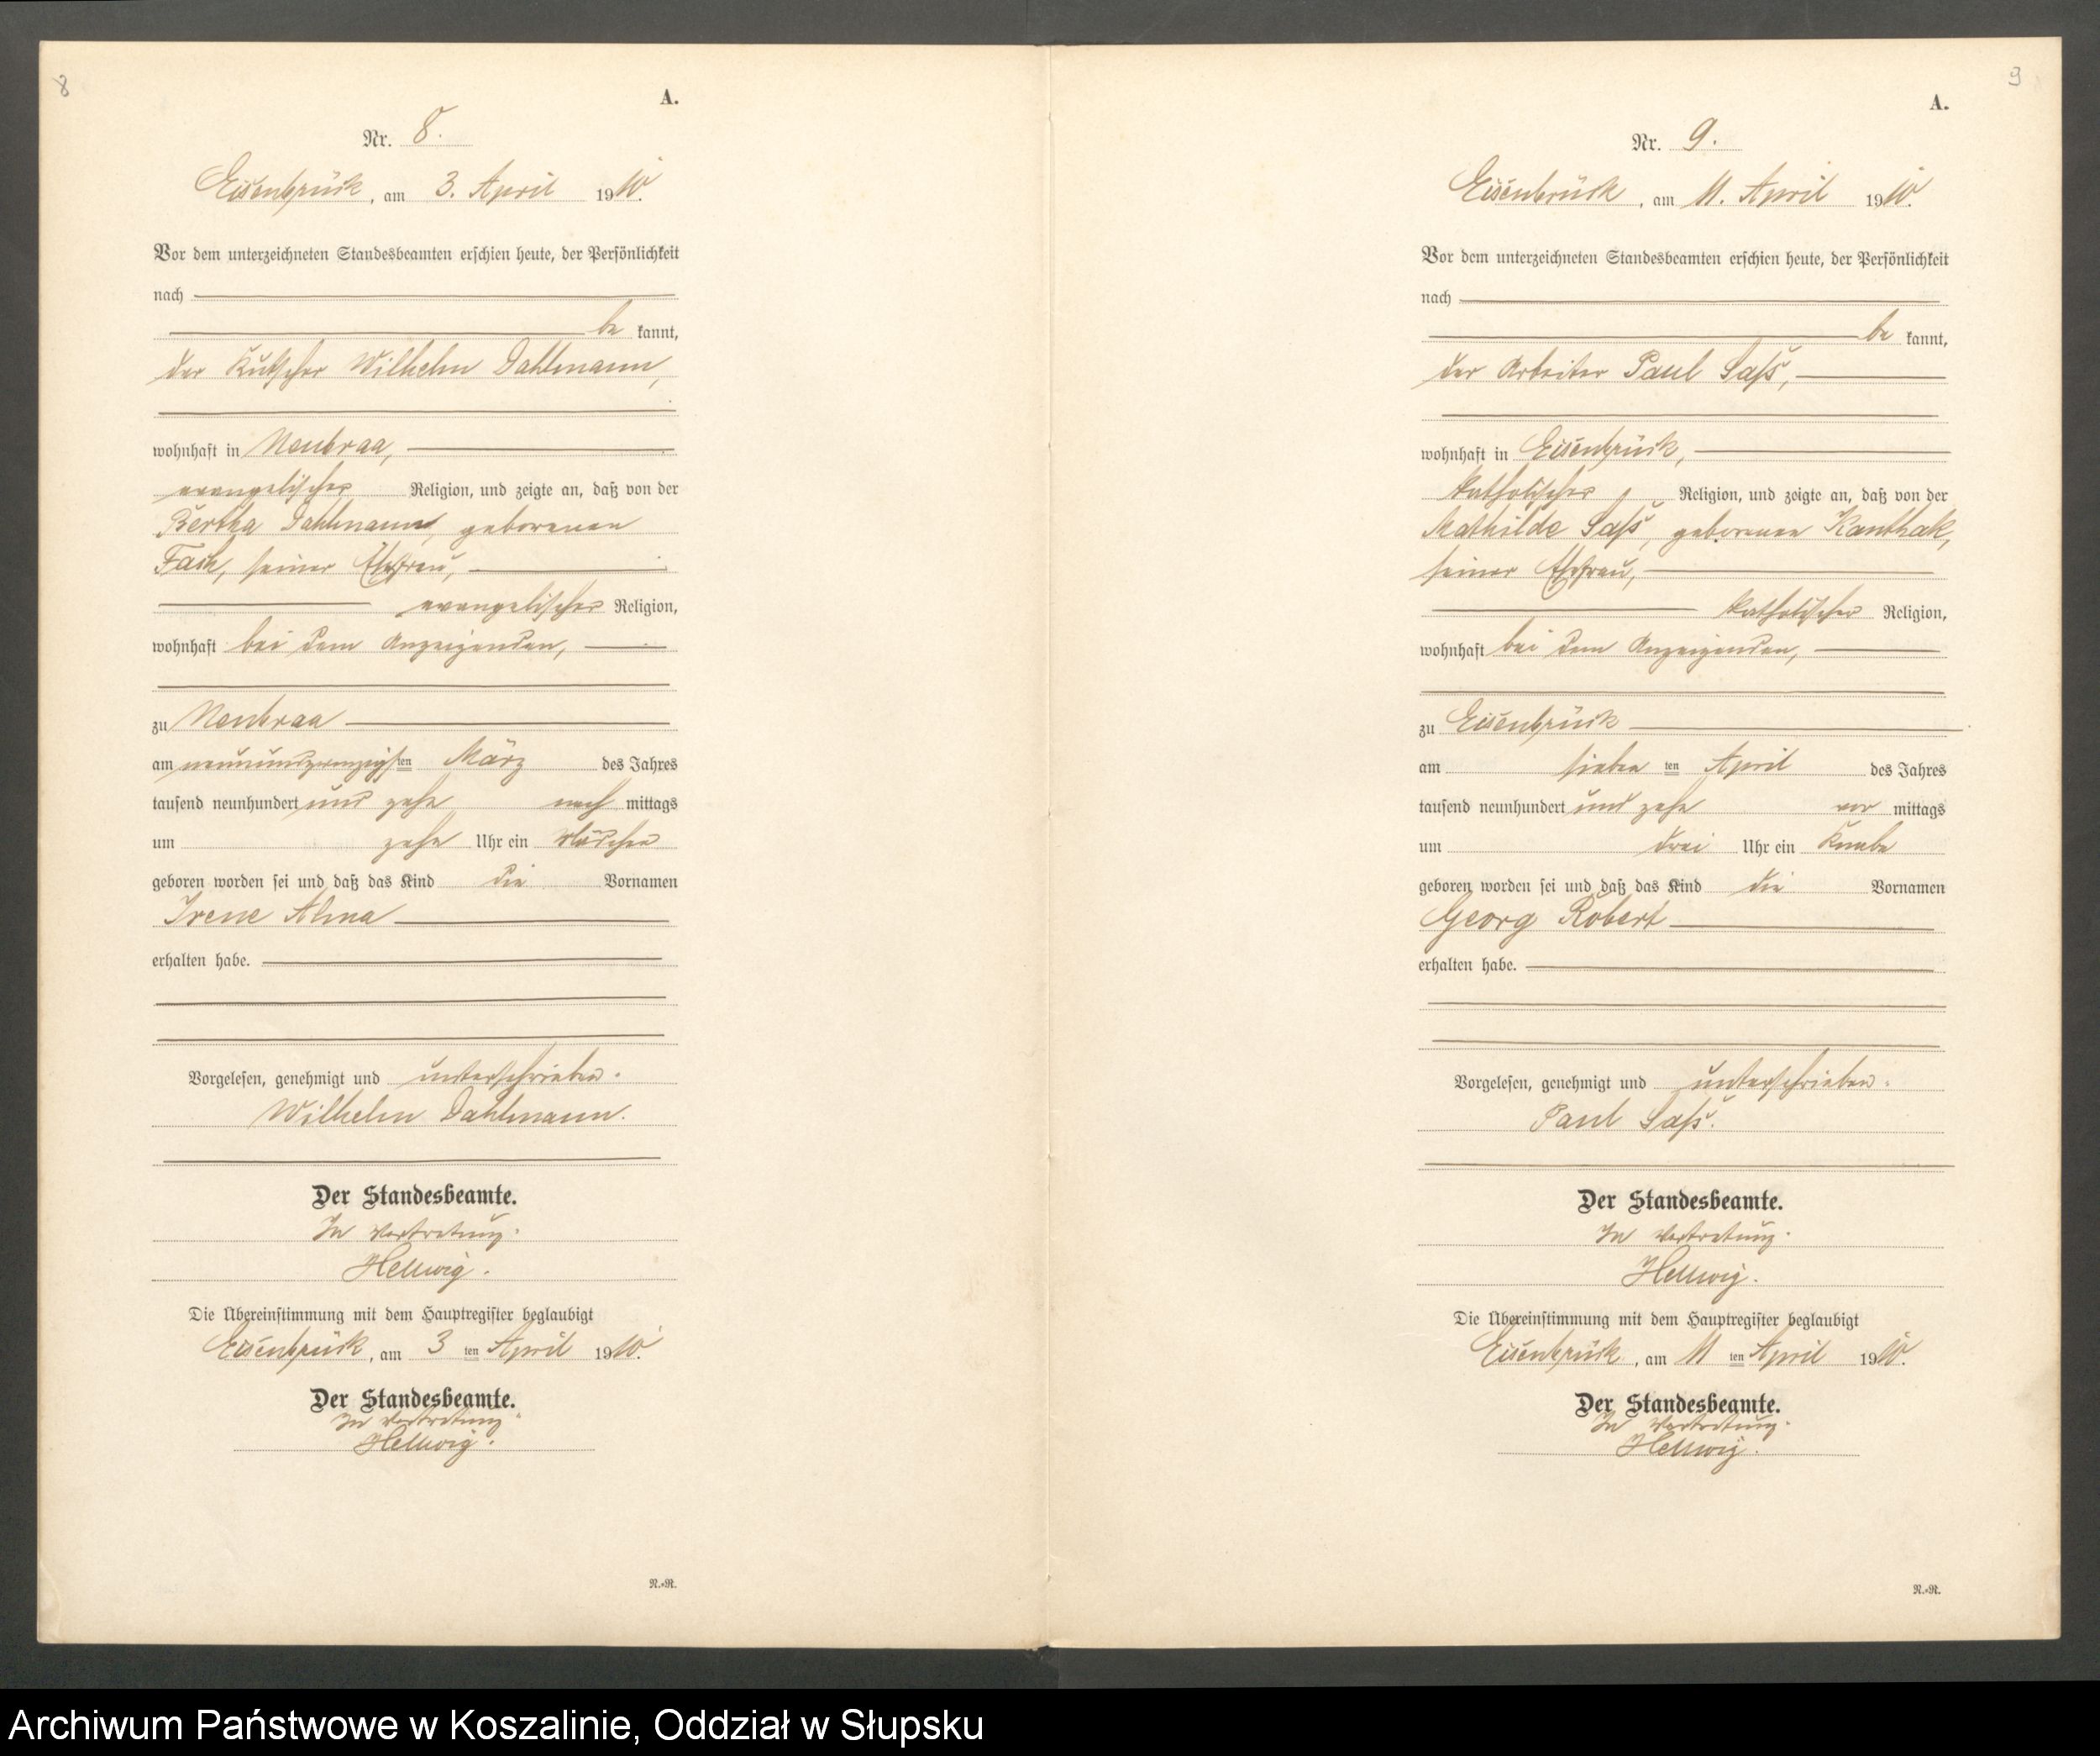 8
A.
Nr. 8.
Eisenbrück, am 3. April 1910.
Vor dem unterzeichneten Standesbeamten erschien heute, der Persönlichkeit
nach
be kannt,
der Kutscher Wilhelm Dahlmann,
wohnhaft in Neubraa,
evangelischer Religion, und zeigte an, daß von der
Bertha Dahlmann, geborenen
Fach, seiner Ehefrau,
evangelischer Religion,
wohnhaft bei dem Anzeigenden,
zu Neubraa
am neunundzwanzigsten März des Jahres
tausend neunhundert und zehn nach mittags
um zehn Uhr ein Mädchen
geboren worden sei und daß das Kind die Vornamen
Irene Alma
erhalten habe.
Vorgelesen, genehmigt und unterschrieben.
Wilhelm Dahlmann.
Der Standesbeamte.
In Vertretung.
Hellwig.
Die Übereinstimmung mit dem Hauptregister beglaubigt
Eisenbrück, am 3 ten April 1910.
Der Standesbeamte.
In Vertretung.
Hellwig.
N.-N.
9
A.
Nr. 9.
Eisenbrück, am 11. April 1910.
Vor dem unterzeichneten Standesbeamten erschien heute, der Persönlichkeit
nach
be kannt,
der Arbeiter Paul Saß,
wohnhaft in Eisenbrück,
katholischer Religion, und zeigte an, daß von der
Mathilde Saß, geborenen Kanthak,
seiner Ehefrau,
katholischer Religion,
wohnhaft bei dem Anzeigenden,
zu Eisenbrück
am sieben ten April des Jahres
tausend neunhundert und zehn vor mittags
um drei Uhr ein Knabe
geboren worden sei und daß das Kind die Vornamen
Georg Robert
erhalten habe.
Vorgelesen, genehmigt und unterschrieben.
Paul Saß.
Der Standesbeamte.
In Vertretung.
Hellwig.
Die Übereinstimmung mit dem Hauptregister beglaubigt
Eisenbrück, am 11 ten April 1910.
Der Standesbeamte.
In Vertretung.
Hellwig.
N.-N.
Archiwum Państwowe w Koszalinie, Oddział w Słupsku